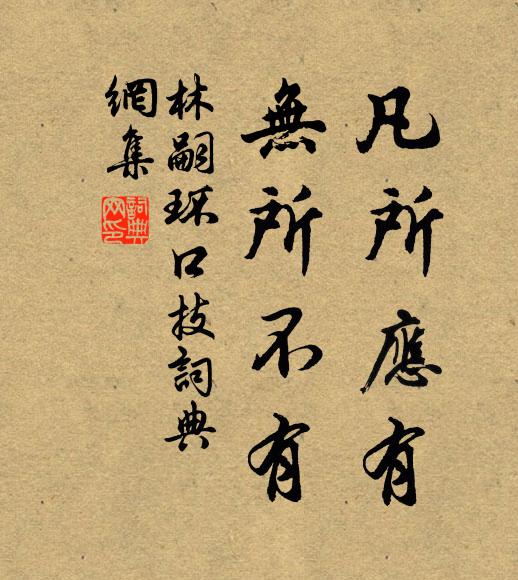 凡所應有
無所不有
林嗣環口技詞典
網集
詞典
网印